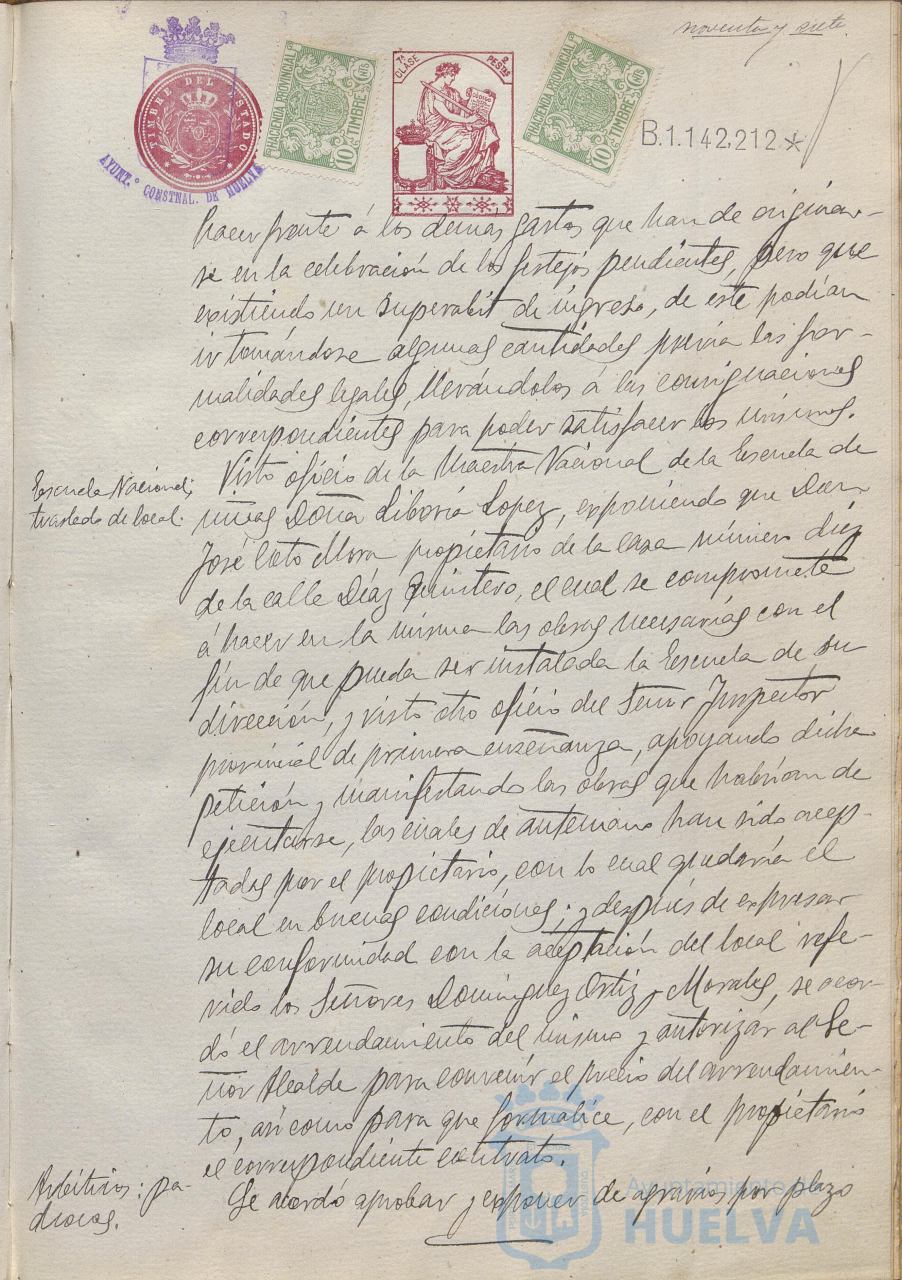 noventa y siete.
TIMBRE DEL ESTADO
AYUNT.º CONSTNAL. DE HUELVA
HACIENDA PROVINCIAL
TIMBRE
10 Cts
7ª CLASE 2 PESETAS
HACIENDA PROVINCIAL
TIMBRE
10 Cts
B.1.142,212*
hacer frente á los demás gastos que han de originar-
se en la celebración de los festejos pendientes, pero que
existiendo un superabit de ingreso, de este podían
ir tomándose algunas cantidades previa las for-
malidades legales, llevándolos á las consignaciones
correspondientes para poder satisfacer los mismos.
Escuela Nacional;
traslado de local.
Visto oficio de la Maestra Nacional de la Escuela de
niñas Doña Liboria Lopez, exponiendo que Don
José Coto Mora, propietario de la casa número diez
de la calle Díaz Quintero, el cual se compromete
á hacer en la misma las obras necesarias con el
fin de que pueda ser instalada la Escuela de su
dirección, y visto otro oficio del Señor Inspector
provincial de primera enseñanza, apoyando dicha
petición y manifestando las obras que habrían de
ejecutarse, las cuales de antemano han sido acep-
tadas por el propietario, con lo cual quedaría el
local en buenas condiciones; y después de expresar
su conformidad con la aceptación del local refe-
rido los Señores Domínguez Ortiz y Morales, se acor-
dó el arrendamiento del mismo y autorizár al Se-
ñor Alcalde para convenir el precio del arrendamien-
to, así como para que formalice, con el propietario
el correspondiente contrato.
Arbitrios: pa-
drones.
Se acordó aprobar y exponer de agravios por plazo
Ayuntamiento de
HUELVA